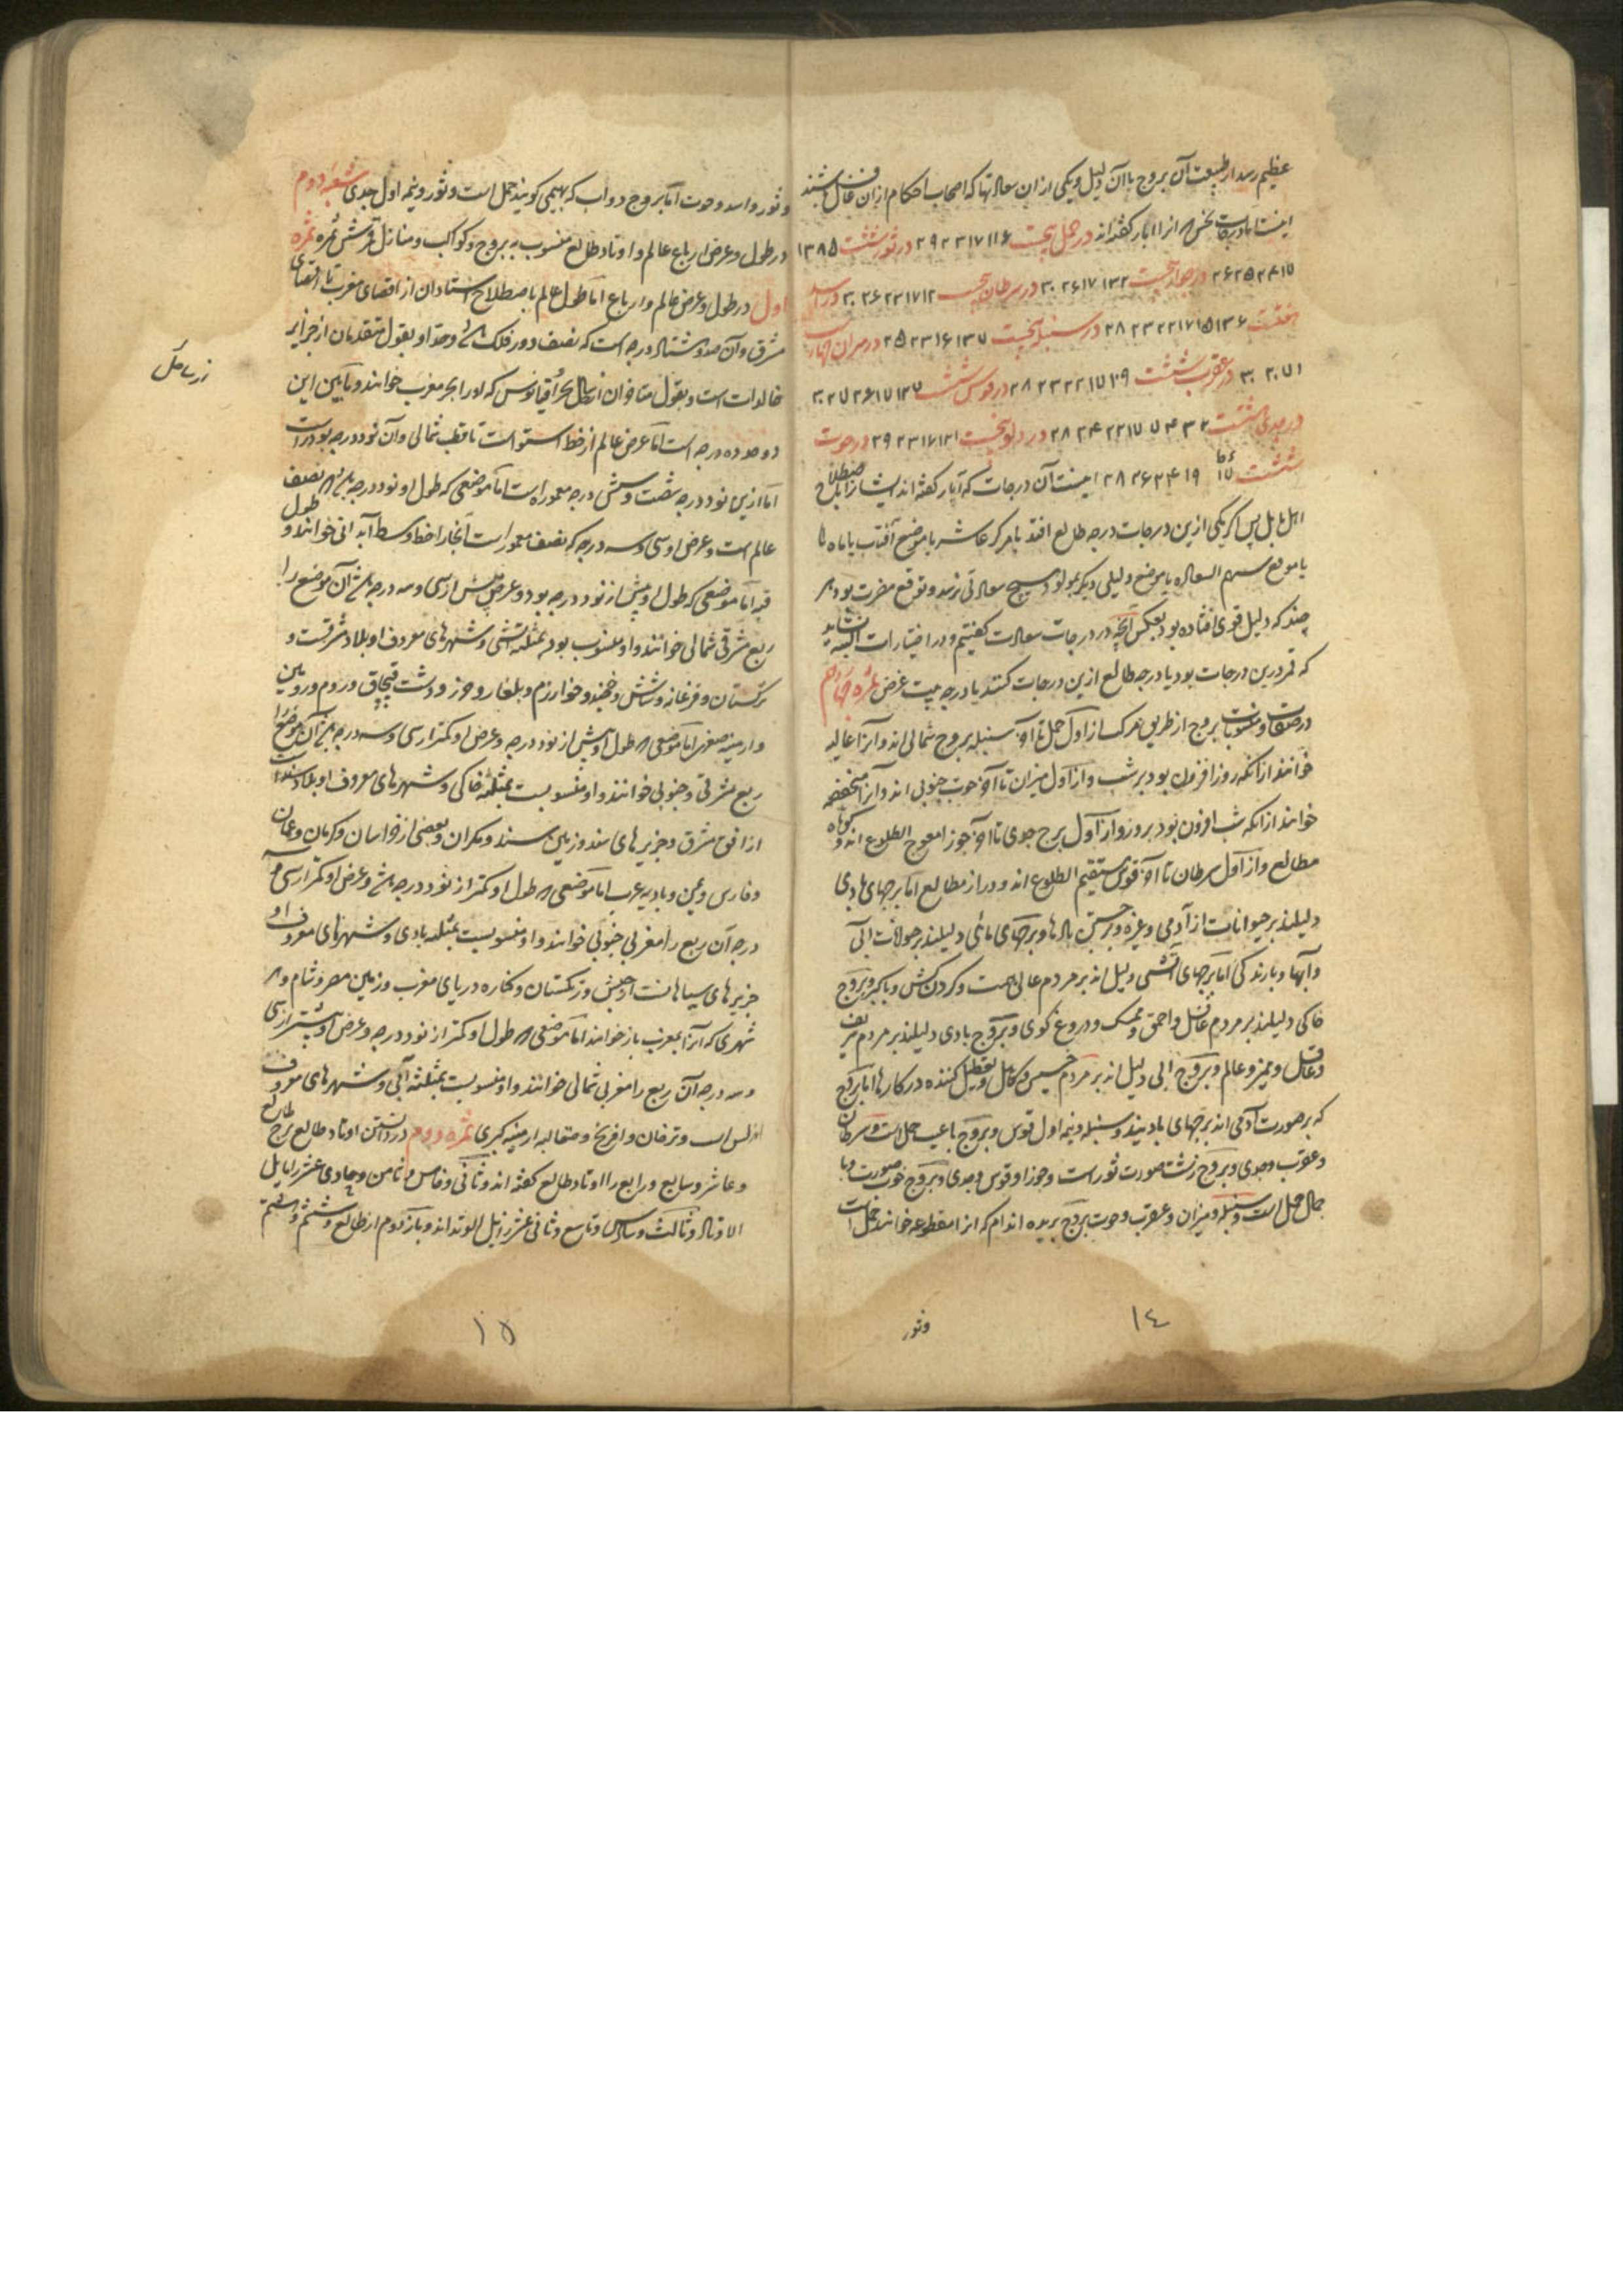 عظیم رسد از طبیعت آن بروج با آن دلیل و یکی از ان سعادتها که اصحاب احکام ازان غافل باشند
اینست اما درجات نحس که انرا ابار گفته‌اند در حمل پنجست ۶ ۱۱ ۱۷ ۲۳ ۲۹ در ثور ششت ۵ ۱۳ ۸
در جوزا پنجست ۲ ۱۳ ۱۷ ۲۶ ۳۰ در سرطان پنجست ۱۲ ۱۷ ۲۳ ۲۶ ۳۰ در اسد
هفتست ۶ ۱۳ ۱۵ ۱۷ ۲۲ ۲۳ ۲۸ در سنبله پنجست ۷ ۱۳ ۱۶ ۲۳ ۲۵ در میزان
۱ ۷ ۲۰ ۳۰ در عقرب ششت ۹ ۱۷ ۲۲ ۲۳ ۲۸ در قوس ششت ۷ ۱۲ ۱۵ ۲۶ ۲۷ ۳۰
در جدی هشتست ۲ ۳ ۴ ۷ ۱۷ ۲۲ ۲۴ ۲۸ در دلو پنجست ۱ ۱۲ ۱۷ ۲۳ ۲۹ در حوت
ششت ۱۹ ۲۴ ۲۶ ۲۸ اینست آن درجات که آبار گفته اند ایشانرا باصطلاح
اهل بابل پس اگر یکی ازین درجات درجه طالع افتد یا مرکز عاشر یا موضع آفتاب یا ماه
یا موضع سهم السعاده یا موضع دلیلی دیگر بمولود هیچ سعادتی نرسد و توقع مضرت بود هر
چند که دلیل قوی افتاده بود بعکس آنچه در درجات سعادت گفتیم و در اختیارات البته نشاید
که قمر درین درجات بود یا درجه طالع ازین درجات کنند یا درجه بیت غرض ثمره چهارم
در صفات و منسوبات بروج از طریق هر کس از اول حمل تا آخر سنبله بروج شمالی اند و آنرا عالیه
خوانند از آنکه روز افزون بود بر شب و از اول میزان تا آخر حوت جنوبی اند و آنرا منخفضه
خوانند از آنکه شب افزون بود بر روز و از اول برج جدی تا آخر جوزا معوج الطلوع اند و کوتاه
مطالع و از اول سرطان تا آخر قوس مستقیم الطلوع اند و دراز مطالع اما برجهای بادی
دلیلند بر حیوانات از آدمی و غیره و جستن بادها و برجهای مائی دلیلند بر حیوانات آبی
و آبها و بارندگی اما برجهای آتشی دلیل اند بر مردم عالی همت و گردن کش و با کبر و بروج
خاکی دلیلند بر مردم غافل و احمق و ممسک و دروغ گوی و بروج بادی دلیلند بر مردم شریف
و عاقل و ممیز و عالم و بروج آبی دلیل اند بر مردم خسیس و کاهل و تعطیل کننده در کارها اما بروج
که بر صورت آدمی اند برجهای بادیند و سنبله و نیمه اول قوس و بروج با عیب حمل است و سرطان
و عقرب و جدی و بروج زشت صورت ثور است و جوزا و قوس و جدی و بروج خوب صورت و با
جمال حمل است و سنبله و میزان و عقرب و حوت بروج بریده اندام که انرا مقطوعه خوانند حمل است
وثور
١٤
و ثور و اسد و حوت اما بروج دواب که بهیمی گویند حمل است و ثور و نیمه اول جدی شعبه دوم
در طول و عرض ارباع عالم و اوتاد طالع منسوب به بروج و کواکب و منازل قمر شش ثمره ثمره
اول در طول و عرض عالم و ارباع اما طول عالم باصطلاح استادان از اقصای مغرب تا اقصای
مشرق و آن صد و هشتاد درجه است که نصف دور فلک باشد و حد او بقول متقدمان از جزایر
خالدات است و بقول متاخران از ساحل بحر اقیانوس که او را بحر مغرب خوانند و مابین این
دو حد ده درجه است اما عرض عالم از خط استوا است تا قطب شمالی و آن نود درجه بود راست
اما ازین نود درجه شصت و شش درجه معموره است اما موضعی که طول او نود درجه باشد که نصف طول
عالم است و عرض او سی و سه درجه که نصف معمور است آنجا را خط وسط آبادانی خوانند و
قبه اما موضعی که طول او بیش از نود درجه بود و عرض بیش از سی و سه درجه باشد آن موضع را
ربع مشرقی شمالی خوانند و او منسوب بود بمثلثه آتشی و شهرهای معروف او بلاد مشرقست و
ترکستان و فرغانه و شاش و خجند و خوارزم و بلغار و خزر و دشت قبچاق و روم و زمین
و ارمینه صغری اما موضعی که طول او بیش از نود درجه و عرض او کمتر از سی و سه درجه باشد آن موضع را
ربع مشرقی و جنوبی خوانند و او منسوبست بمثلثه خاکی و شهرهای معروف او بلاد هند است
از افق مشرق و جزیرهای هند و زمین سند و مکران و بعضی از خراسان و کرمان و عمان
و فارس و یمن و بادیه عرب اما موضعی که طول او کمتر از نود درجه باشد و عرض او کمتر از سی و سه
درجه آن ربع را مغربی جنوبی خوانند و او منسوبیست بمثلثه بادی و شهرهای معروف او
جزیرهای سیاهانست از حبش و ترکستان و کناره دریای مغرب و زمین مصر و شام و هر
شهری که آنرا بمغرب باز خوانند اما موضعی که طول او کمتر از نود درجه و عرض او بیشتر از سی
و سه درجه آن ربع را مغربی شمالی خوانند و او منسوبیست بمثلثه آبی و شهرهای معروف
اندلس است و ترخان و افرنج و صقالبه ارمینیه کبری ثمره دوم در دانستن اوتاد طالع برج طالع
و عاشر و سابع و رابع را اوتاد طالع گفته اند و ثانی و خامس و ثامن و حادی عشر را مایل
الاوتاد و ثالث و سادس و تاسع و ثانی عشر زایل الوتد اند و بازدوم از طالع و ششم و هشتم
١٥